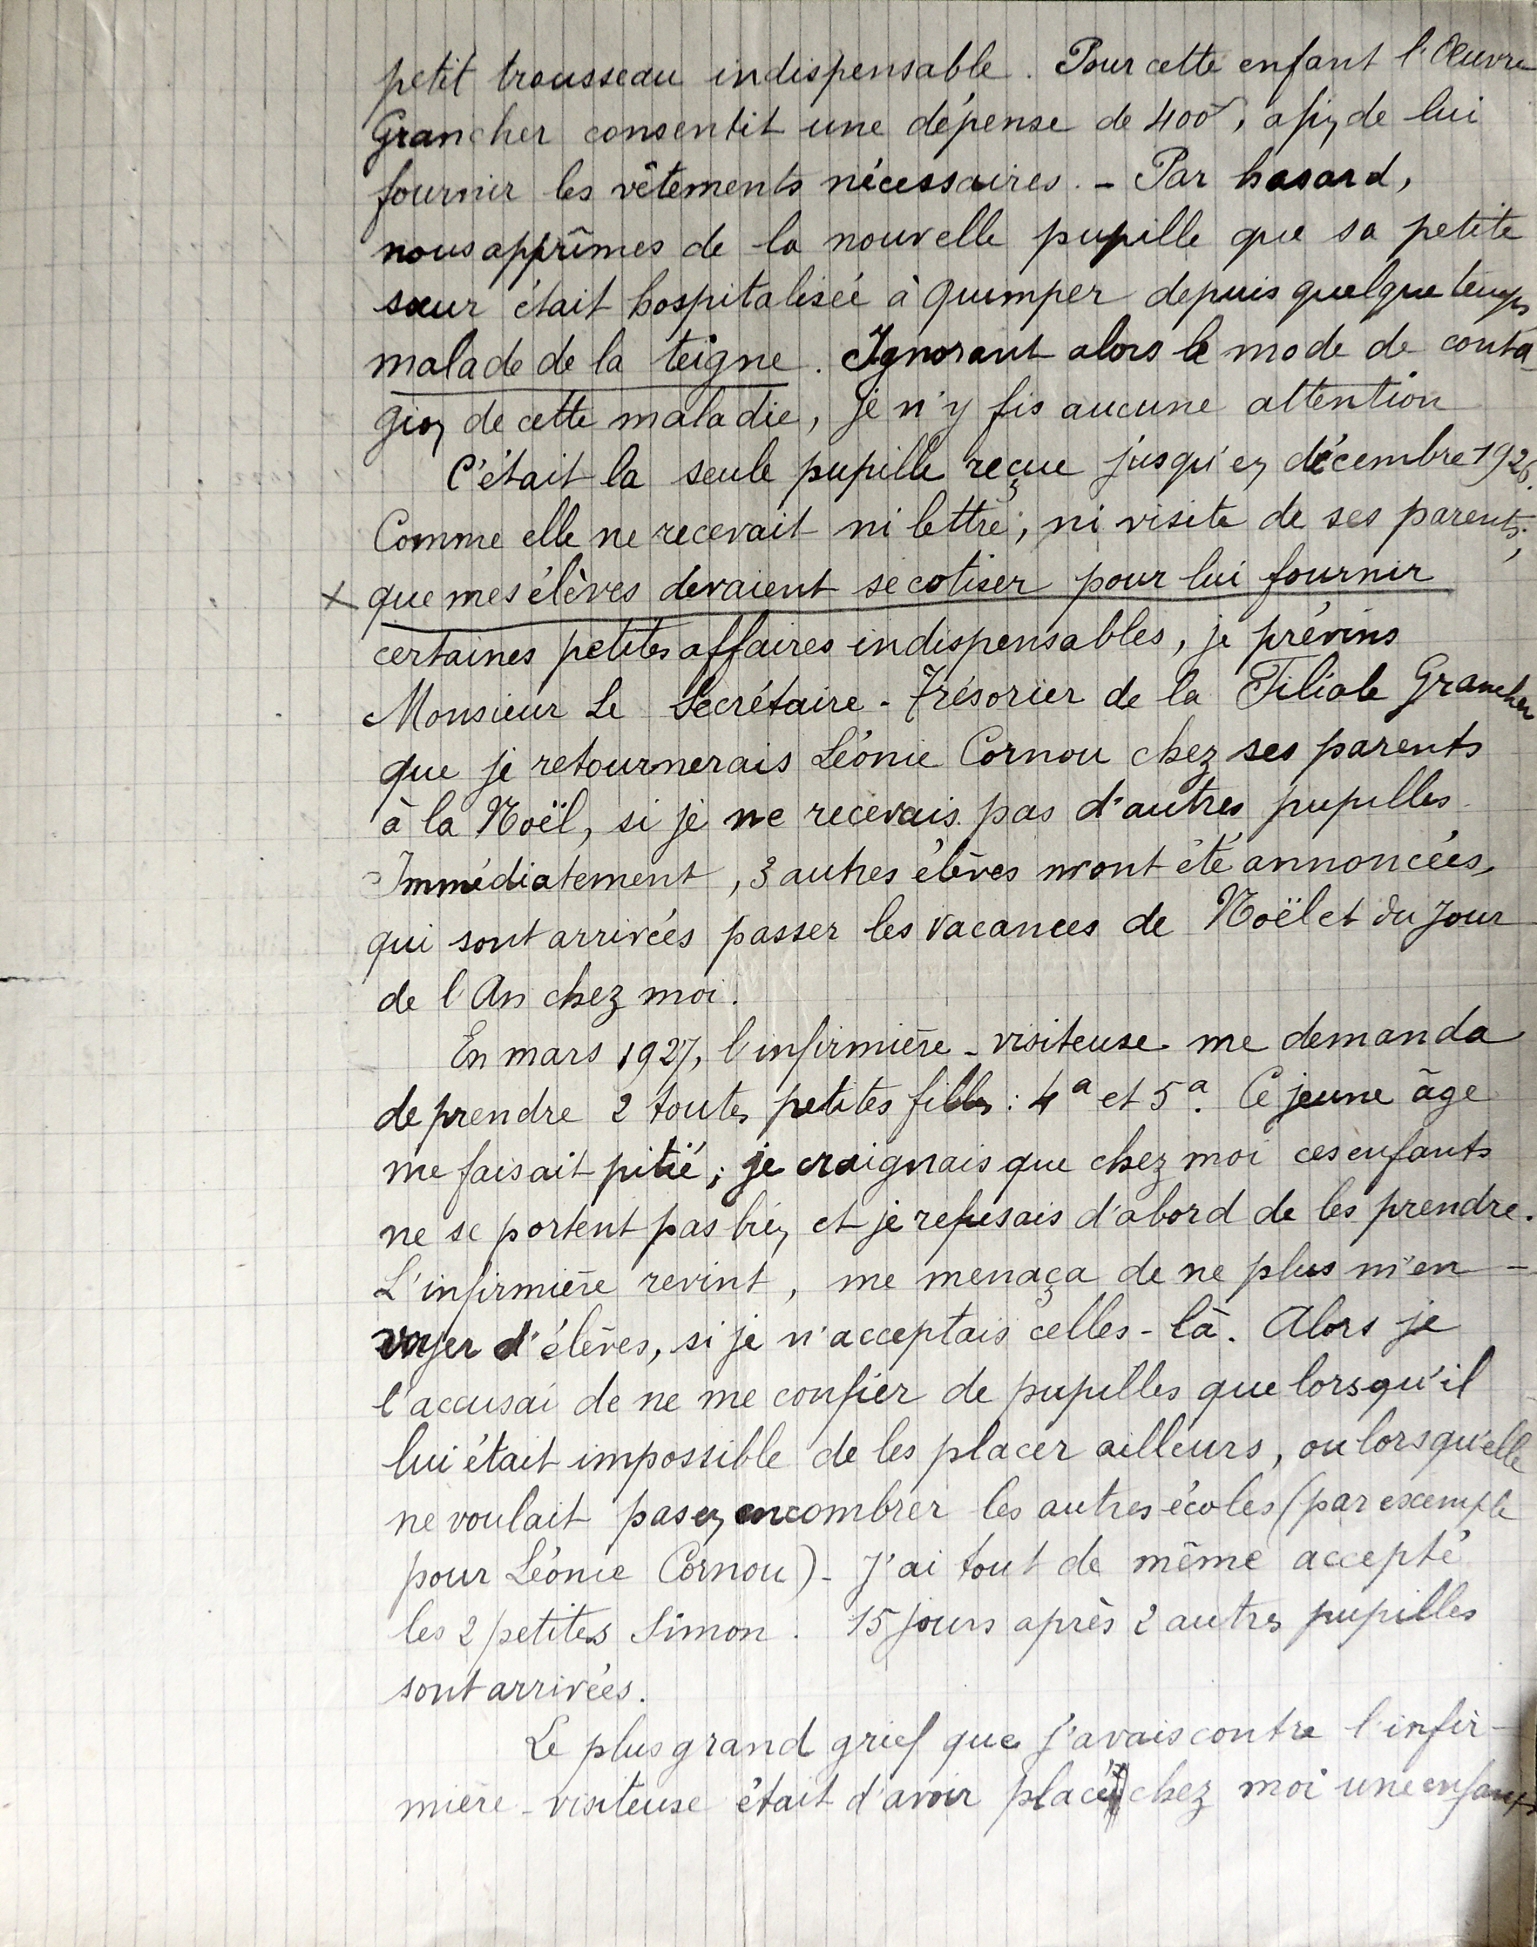 petit trousseau indispensable. Pour cette enfant l'Œuvre
Grancher consentit une dépense de 400f, afin de lui
fournir les vêtements nécessaires. - Par hasard,
nous apprîmes de la nouvelle pupille que sa petite
sœur était hospitalisée à Quimper depuis quelque temps
malade de la teigne. Ignorant alors le mode de conta-
gion de cette maladie, je n'y fis aucune attention
C'était la seule pupille reçue jusqu'en décembre 1926.
Comme elle ne recevait ni lettre, ni visite de ses parents;
x que mes élèves devaient se cotiser pour lui fournir
certaines petites affaires indispensables, je prévins
Monsieur Le Secrétaire-Trésorier de la Filiale Grancher
que je retournerais Léonie Cornou chez ses parents
à la Noël, si je ne recevais pas d'autres pupilles.
Immédiatement, 3 autres élèves m'ont été annoncées,
qui sont arrivées passer les vacances de Noël et du Jour
de l'An chez moi.
En mars 1927, l'infirmière-visiteuse me demanda
de prendre 2 toutes petites filles : 4a et 5a. Ce jeune âge
me faisait pitié; je craignais que chez moi ces enfants
ne se portent pas bien et je refusais d'abord de les prendre.
L'infirmière revint, me menaça de ne plus m'en-
voyer d'élèves, si je n'acceptais celles-là. Alors je
l'accusai de ne me confier de pupilles que lorsqu'il
lui était impossible de les placer ailleurs, ou lorsqu'elle
ne voulait pas en encombrer les autres écoles (par exemple
pour Léonie Cornou) - J'ai tout de même accepté
les 2 petites Simon. 15 jours après 2 autres pupilles
sont arrivées.
Le plus grand grief que j'avais contre l'infir-
mière-visiteuse était d'avoir placé chez moi une enfant